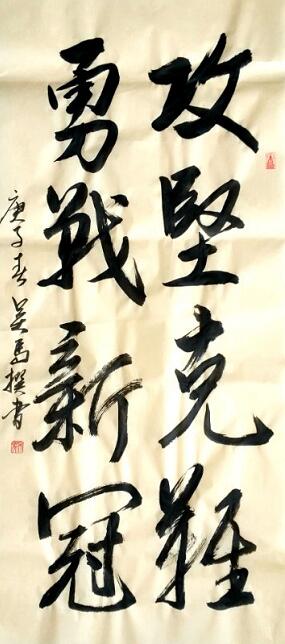 攻堅克難
勇戰新冠
庚子春吴馬撰書